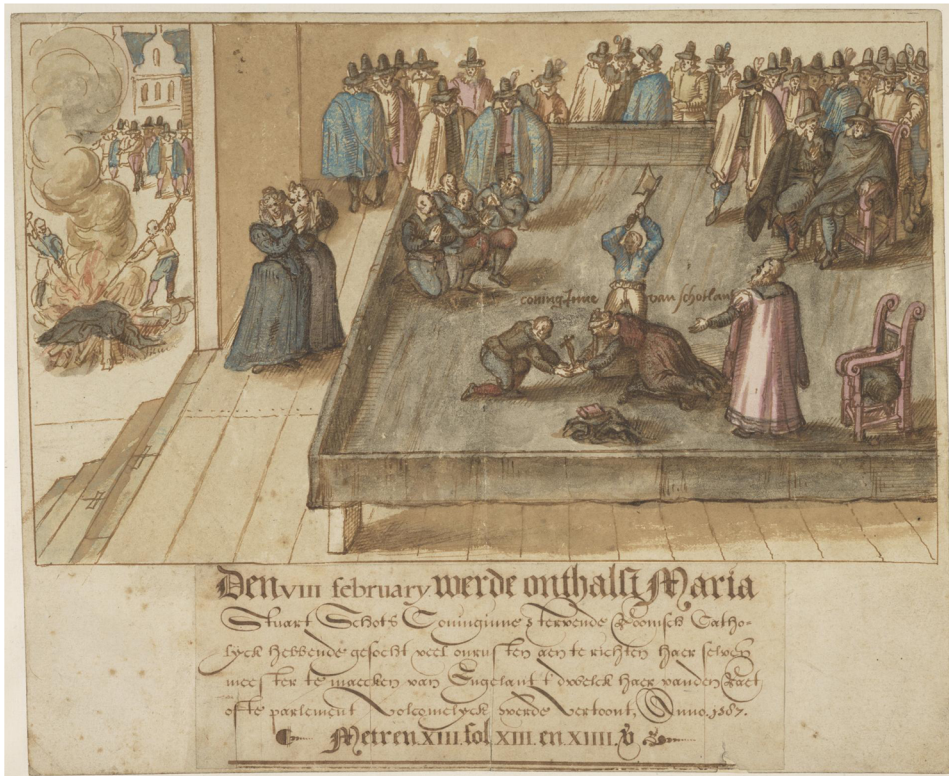 coninginne van schotlan
Den VIII february werde onthalst Maria
Stuart Schots Coninginne stervende Roomsch Catho-
lyck hebbende gesocht veel onrusten aen te richten haer selven
meester te maecken van Engelant t'dwelck haer vanden Raet
ofte parlement Volcomelyck werde Vertoont, Anno. 1587.
Metren XIII fol XIII en XIIII.